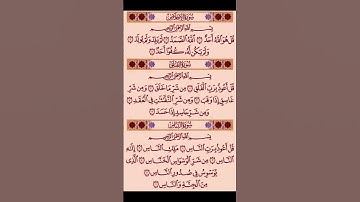 سُورَةُ الإِخْلَاصِ
بِسْمِ اللَّهِ الرَّحْمَٰنِ الرَّحِيمِ
قُلْ هُوَ اللَّهُ أَحَدٌ ۝ اللَّهُ الصَّمَدُ ۝ لَمْ يَلِدْ وَلَمْ يُولَدْ ۝
وَلَمْ يَكُن لَّهُ كُفُوًا أَحَدٌ ۝
سُورَةُ الفَلَقِ
بِسْمِ اللَّهِ الرَّحْمَٰنِ الرَّحِيمِ
قُلْ أَعُوذُ بِرَبِّ الْفَلَقِ ۝ مِن شَرِّ مَا خَلَقَ ۝ وَمِن شَرِّ
غَاسِقٍ إِذَا وَقَبَ ۝ وَمِن شَرِّ النَّفَّٰثَٰتِ فِي الْعُقَدِ ۝
وَمِن شَرِّ حَاسِدٍ إِذَا حَسَدَ ۝
سُورَةُ النَّاسِ
بِسْمِ اللَّهِ الرَّحْمَٰنِ الرَّحِيمِ
قُلْ أَعُوذُ بِرَبِّ النَّاسِ ۝ مَلِكِ النَّاسِ ۝ إِلَٰهِ
النَّاسِ ۝ مِن شَرِّ الْوَسْوَاسِ الْخَنَّاسِ ۝ الَّذِي
يُوَسْوِسُ فِي صُدُورِ النَّاسِ ۝
مِنَ الْجِنَّةِ وَالنَّاسِ ۝